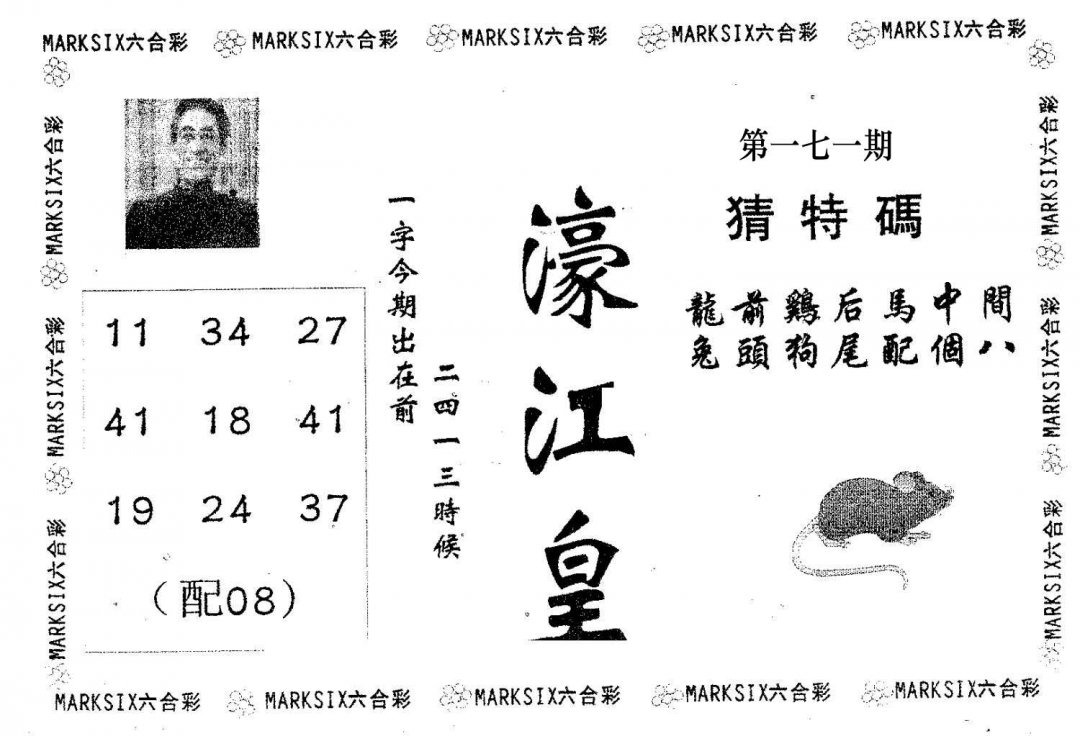 MARKSIX六合彩 MARKSIX六合彩 MARKSIX六合彩 MARKSIX六合彩 MARKSIX六合彩
MARKSIX六合彩
MARKSIX六合彩
MARKSIX六合彩
第一七一期
猜特碼
龍前鷄后馬中間
兔頭狗尾配個八
濠江皇
一字今期出在前
二四一三時候
11 34 27
41 18 41
19 24 37
（配08）
MARKSIX六合彩
MARKSIX六合彩
MARKSIX六合彩
MARKSIX六合彩 MARKSIX六合彩 MARKSIX六合彩 MARKSIX六合彩 MARKSIX六合彩